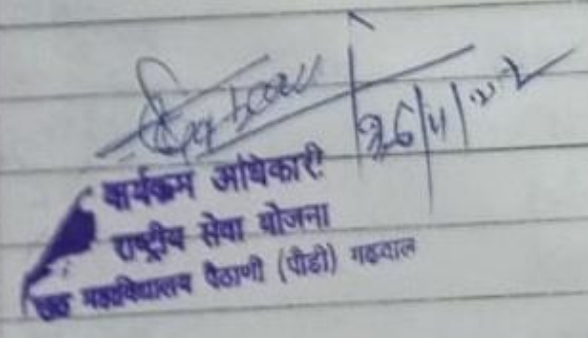 26/11/2022
कार्यक्रम अधिकारी
राष्ट्रीय सेवा योजना
महाविद्यालय पैठाणी (पौडी) गढवाल